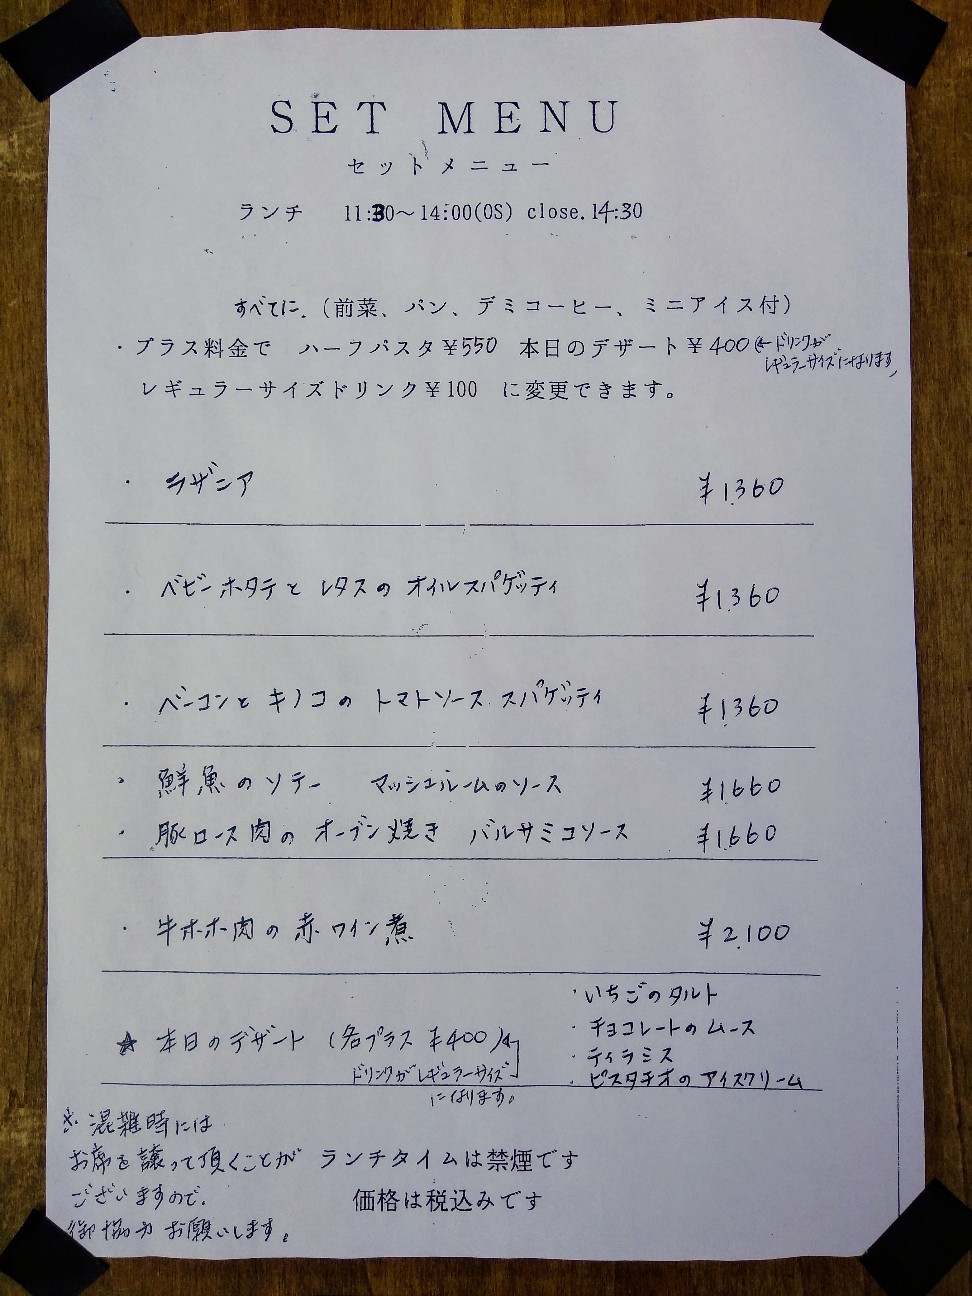 SET MENU
セットメニュー
ランチ 11:30～14:00(OS) close.14:30
すべてに.(前菜、パン、デミコーヒー、ミニアイス付)
・プラス料金で ハーフパスタ¥550 本日のデザート¥400 ←ドリンクが
レギュラーサイズになります。
レギュラーサイズドリンク¥100 に変更できます。
・ラザニア ¥1,360
・ベビーホタテとレタスのオイルスパゲッティ ¥1,360
・ベーコンとキノコのトマトソーススパゲッティ ¥1,360
・鮮魚のソテー マッシュルームのソース ¥1,660
・豚ロース肉のオーブン焼き バルサミコソース ¥1,660
・牛ホホ肉の赤ワイン煮 ¥2,100
★ 本日のデザート (各プラス ¥400)
ドリンクがレギュラーサイズ
になります。
・いちごのタルト
・チョコレートのムース
・ティラミス
・ピスタチオのアイスクリーム
※混雑時には
お席を譲って頂くことが
ございますので、
御協力お願いします。
ランチタイムは禁煙です
価格は税込みです